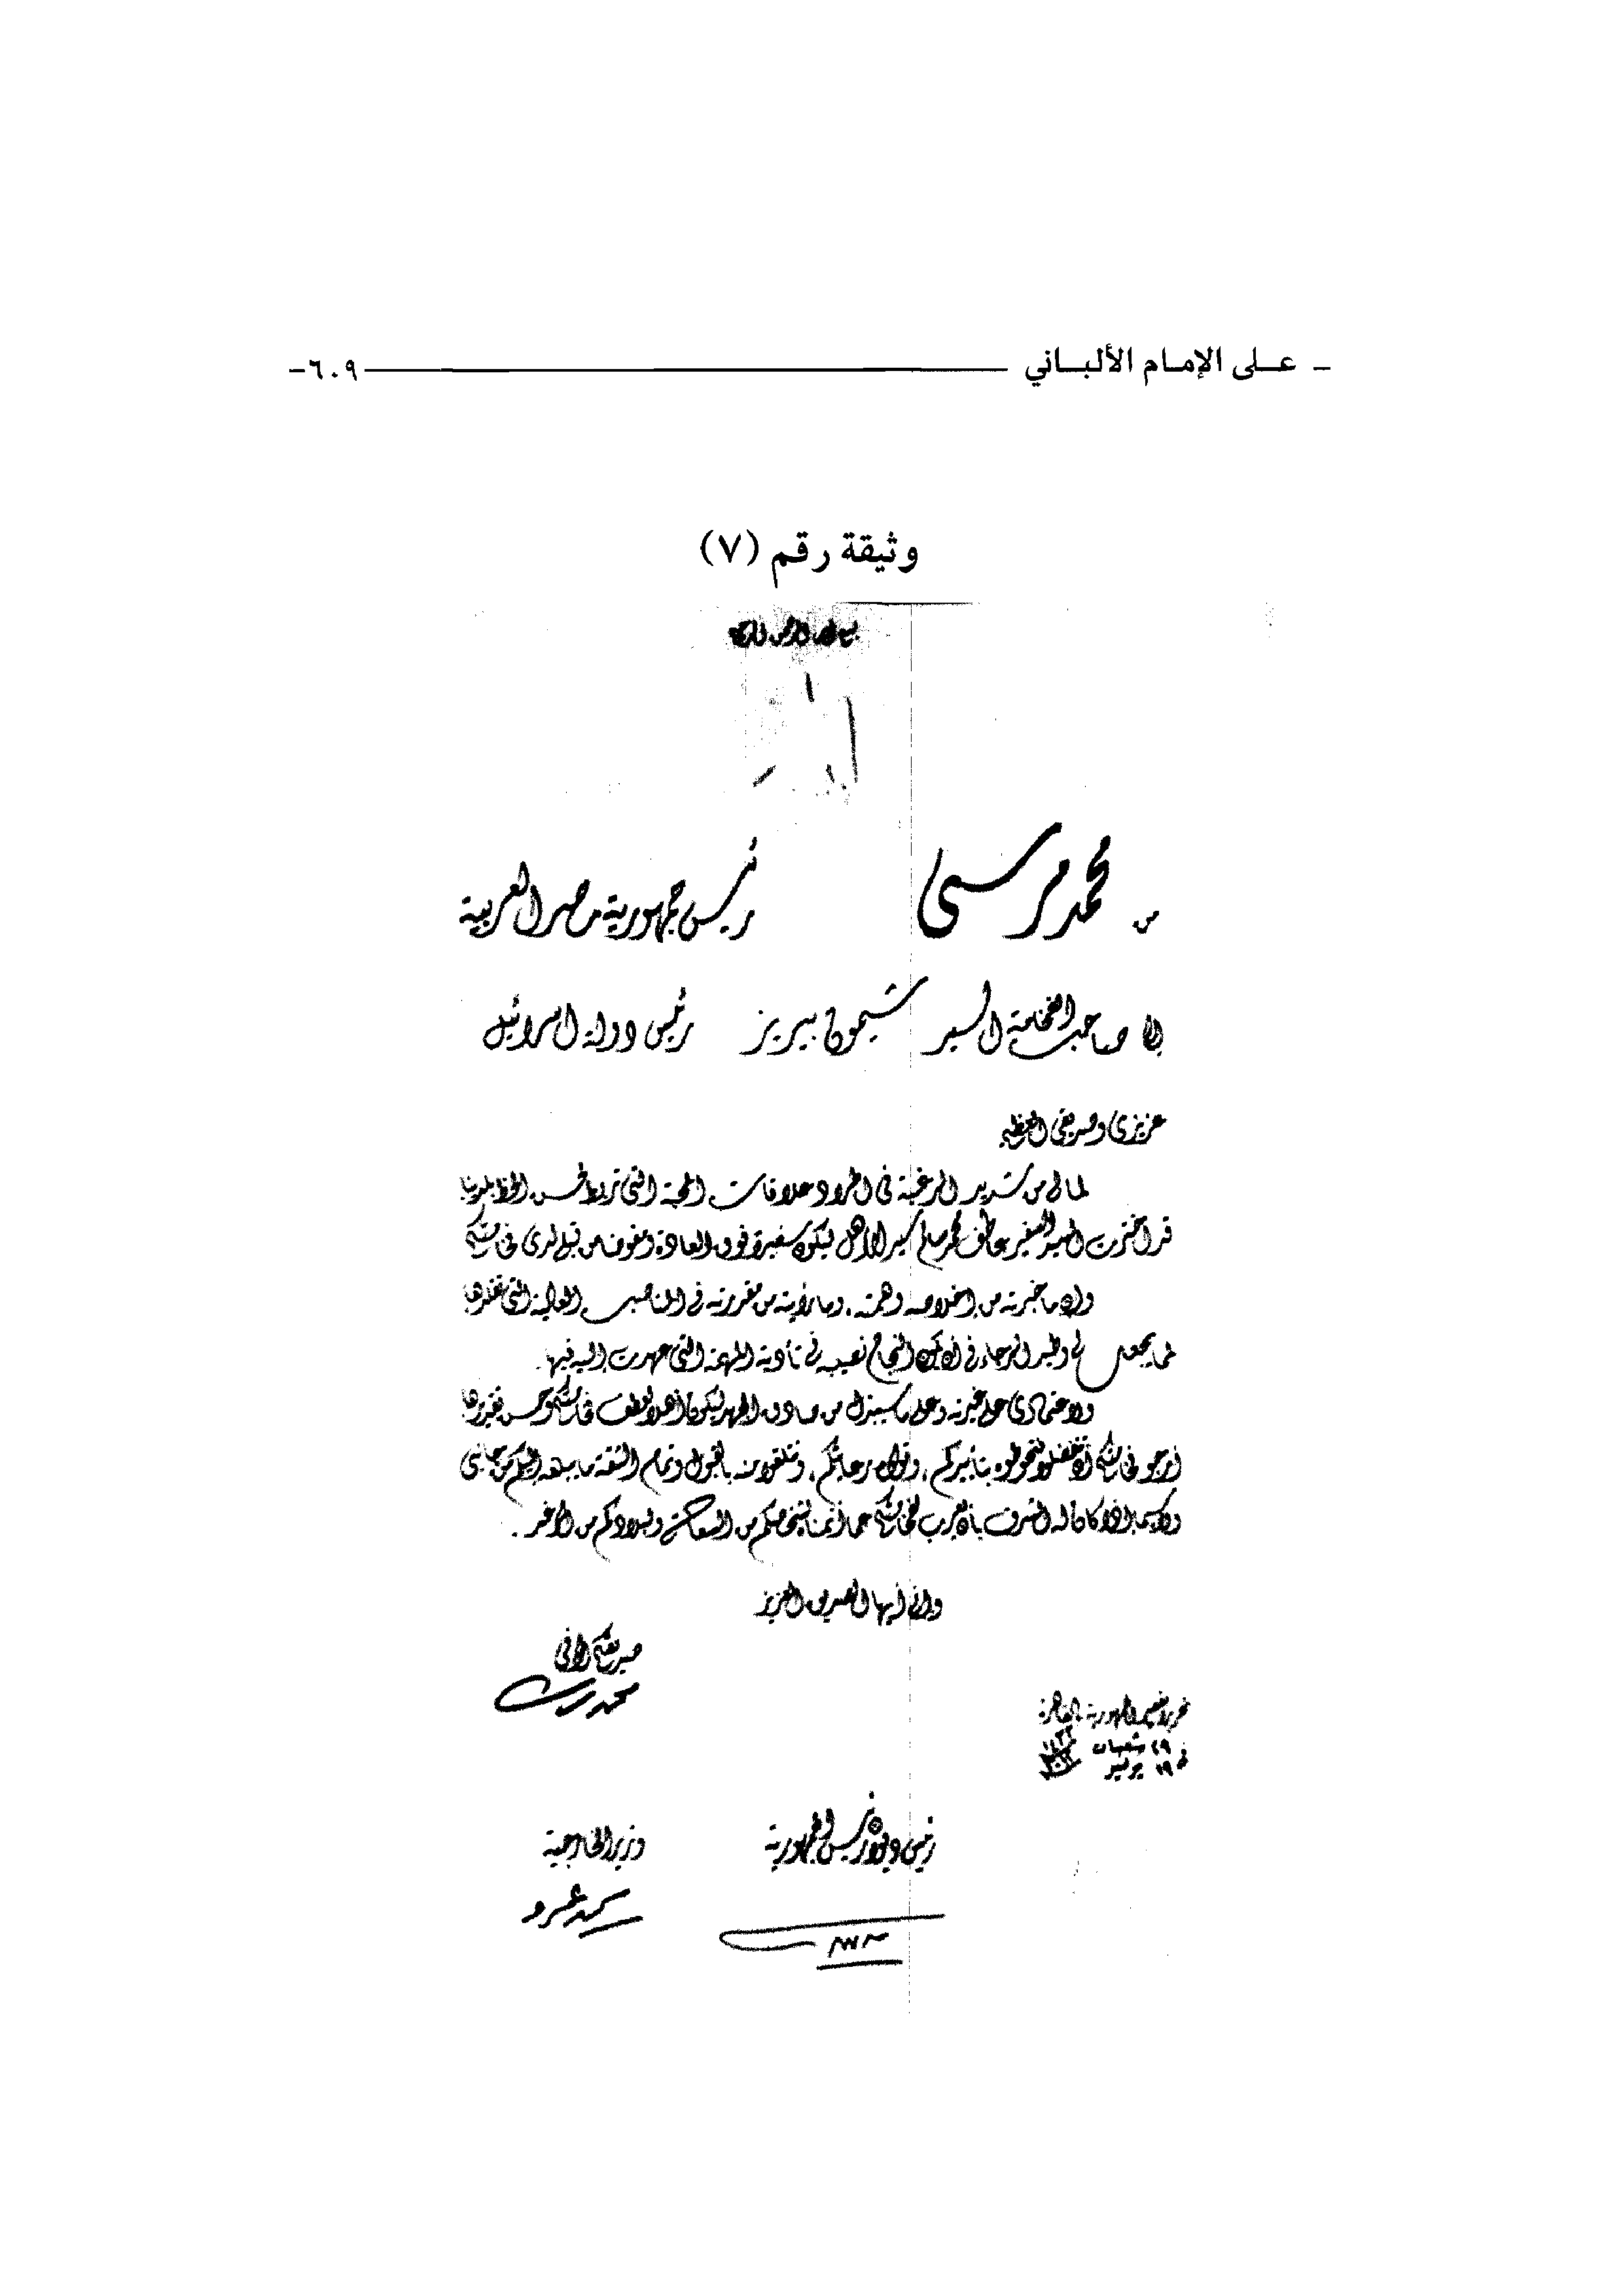 - على الإمام الألباني ـــــــ ٦٠٩-
وثيقة رقم (٧)
بسم الله الرحمن الرحيم
من محمد مرسي رئيس جمهورية مصر العربية
إلى صاحب الفخامة السيد شيمون بيريز رئيس دولة إسرائيل
عزيزي وصديقي العظيم
لما لي من شديد الرغبة في اطراد علاقات المحبة التي تربط لحسن الحظ بلدينا
قد اخترت السيد السفير عاطف محمد سالم سيد الأهل ليكون سفيراً فوق العادة ومفوضاً من قبلي لدى فخامتكم
وإن ما خبرته من إخلاصه وهمته، وما رأيته من مقدرته في المناصب العليا التي تقلدها
لما يجعل لي وطيد الرجاء في أن يكون النجاح نصيبه في تأدية المهمة التي عهدت إليه فيها.
ولاعتمادي على غيرته وعلى ما سيبذل من صادق الجهد ليكون أهلاً لعطف فخامتكم وحسن تقديرها
أرجو من فخامتكم أن تتفضلوا فتحوطوه بتأييدكم، وتولوه رعايتكم، وتتلقوا منه بالقبول وتمام الثقة ما يبلغه إليكم من جانبي
ولا سيما إذا كان له الشرف بأن يعرب لفخامتكم عما أتمناه لشخصكم من السعادة ولبلادكم من الرغد.
وإني أيها الصديق العزيز
صديقكم الوفي
محمد مرسي
تحريراً بقصر الجمهورية بالقاهرة
في ٢٩ شعبان ١٤٣٣
١٩ يوليو ٢٠١٢
رئيس ديوان رئيس الجمهورية
وزير الخارجية
محمد عمرو